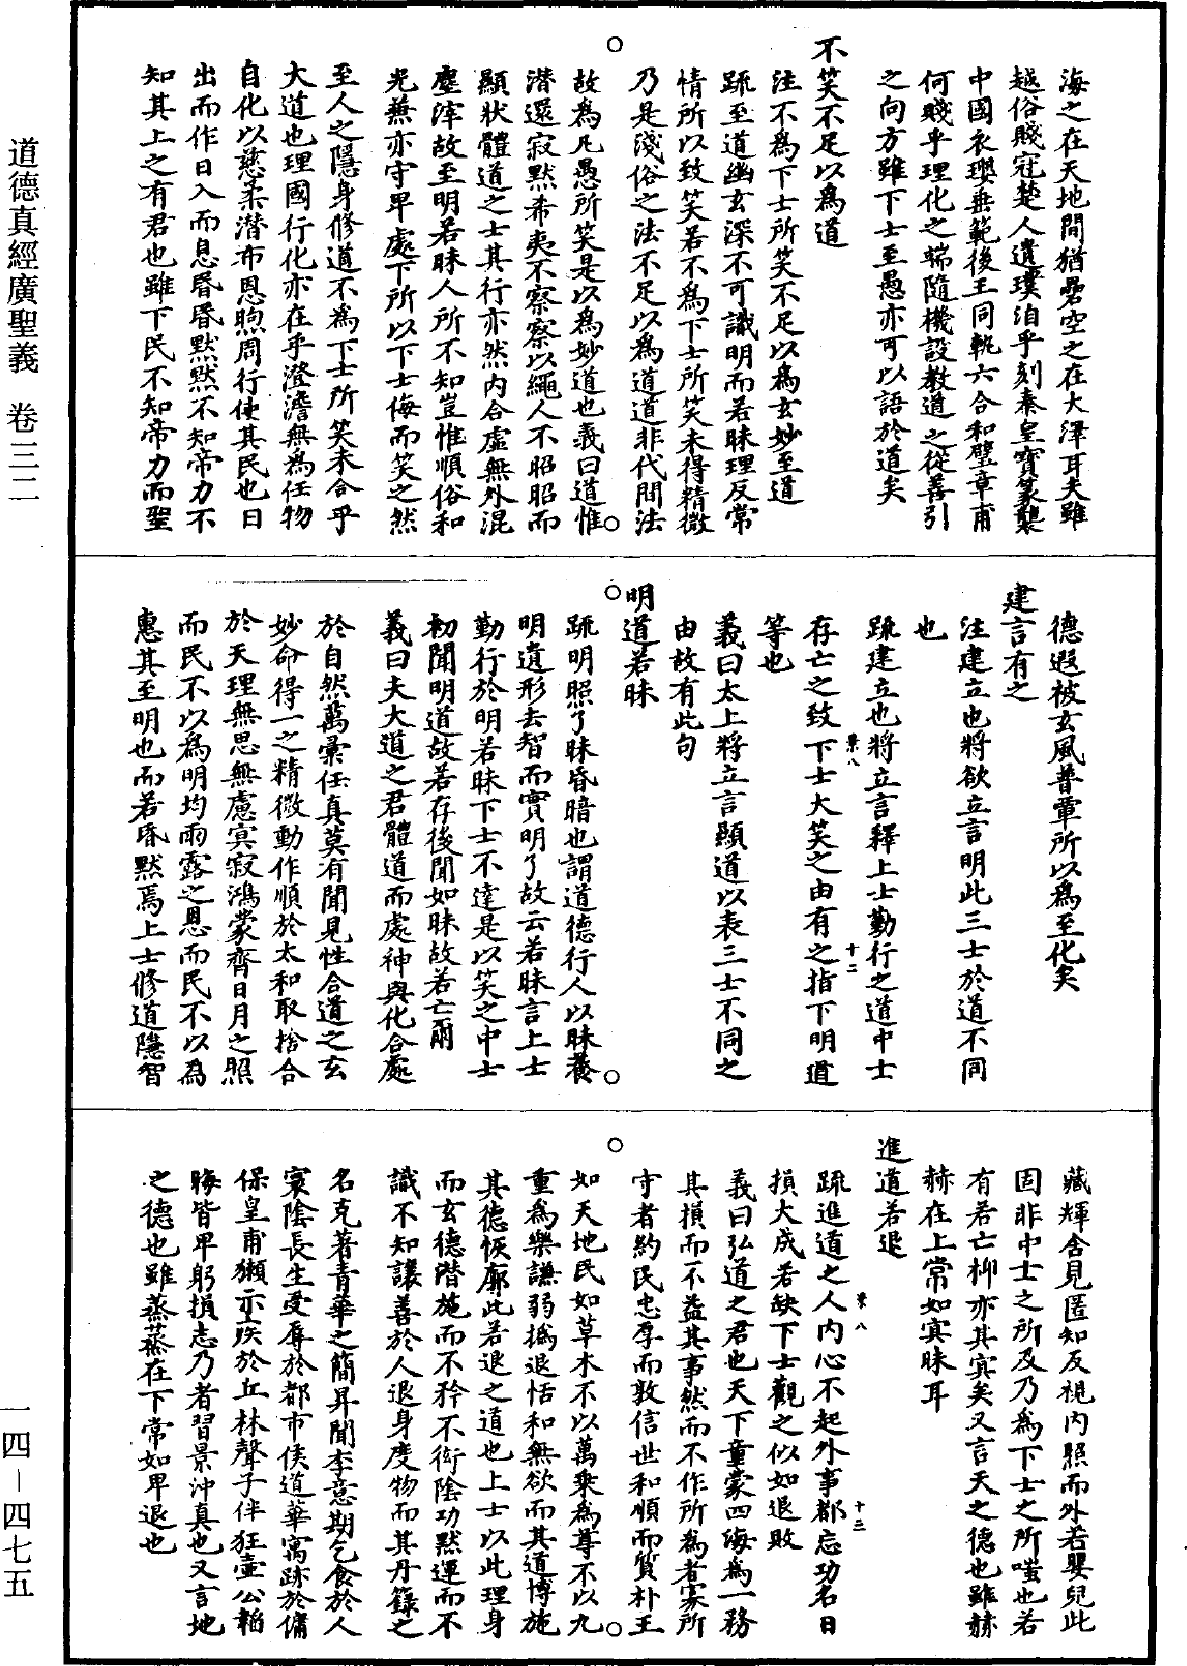 道德真經廣聖義　卷三二
海之在天地間猶罍空之在大澤耳夫雖
越俗賤冠楚人遺璞洎乎刻秦皇寶篆襲
中國衣纓垂範後王同軌六合和璧章甫
何賤乎理化之端隨機設教道之從善引
之向方雖下士至愚亦可以語於道矣
不笑不足以為道
注不為下士所笑不足以為玄妙至道
疏至道幽玄深不可識明而若昧理反常
情所以致笑若不為下士所笑未得精微
乃是淺俗之法不足以為道道非代間法
故為凡愚所笑是以為妙道也義曰道惟
潛還寂默希夷不察察以繩人不昭昭而
顯狀體道之士其行亦然內合虛無外混
塵滓故至明若昧人所不知豈惟順俗和
光兼亦守卑處下所以下士侮而笑之然
至人之隱身修道不為下士所笑未合乎
大道也理國行化亦在乎澄澹無為任物
自化以慈柔潛布恩煦周行使其民也日
出而作日入而息昬昬默默不知帝力不
知其上之有君也雖下民不知帝力而聖
德遐被玄風普覃所以為至化矣
建言有之
注建立也將欲立言明此三士於道不同
也
疏建立也將立言釋上士勤行之道中士
存亡之致下士大笑之由有之指下明道
等也
義曰太上將立言顯道以表三士不同之
由故有此句
明道若昧
疏明照了昧昏暗也謂道德行人以昧養
明遺形去智而實明了故云若昧言上士
勤行於明若昧下士不達是以笑之中士
初聞明道故若存後聞如昧故若亡爾
義曰夫大道之君體道而處神與化合處
於自然萬彙任真莫有聞見性合道之玄
妙命得一之精微動作順於太和取捨合
於天理無思無慮冥寂鴻蒙齊日月之照
而民不以為明均雨露之恩而民不以為
惠其至明也而若昏默焉上士修道隱智
藏輝舍見匿知反視內照而外若嬰兒此
固非中士之所及乃為下士之所嗤也若
有若亡抑亦其冥矣又言天之德也雖赫
赫在上常如冥昧耳
進道若退
疏進道之人內心不起外事都忘功名日
損大成若缺下士觀之似如退敗
義曰弘道之君也天下童蒙四海為一務
其損而不益其事然而不作所為者寡所
守者約民忠厚而敦信世和順而質朴王
如天地民如草木不以萬乘為尊不以九
重為樂謙弱撝退恬和無欲而其道博施
其德恢廓此若退之道也上士以此理身
而玄德潛施而不矜不衒陰功默運而不
識不知讓善於人退身度物而其丹籙之
名克著青華之簡昇聞李意期乞食於人
寰陰長生受辱於都市侯道華寓跡於傭
保皇甫獺示疾於丘林聲子佯狂壺公韜
晦皆卑躬損志乃者習景沖真也又言地
之德也雖蒸蒸在下常如卑退也
業八
十二
業八
十三
一四－四七五